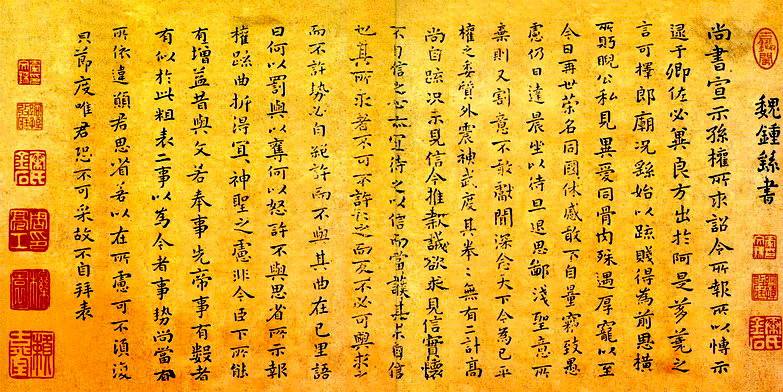 魏鍾繇書
尚書宣示孫權所求詔令所報所以博示
逮于卿佐必冀良方出於阿是芻蕘之
言可擇郎廟況繇始以疏賤得為前恩橫
所眄睨公私見異愛同骨肉殊遇厚寵以至
今日再世榮名同國休慼敢不自量竊致愚
慮仍日達晨坐以待旦退思鄙淺聖意所
棄則又割意不敢獻聞深念天下今為已平
權之委質外震神武度其拳〻無有二計高
尚自疏況未見信今推款誠欲求見信實懷
不自信之心亦宜待之以信而當護其未自信
也其所求者不可不許許〻之而反不必可與求之
而不許勢必自絕許而不與其曲在己里語
曰何以罰與以奪何以怒許不與思省所示報
權疏曲折得宜〻神聖之慮非今臣下所能
有增益昔與文若奉事先帝事有數者
有似於此粗表二事以為今者事勢尚當有
所依違願君思省若以在所慮可不須復
只節度唯君恐不可采故不自拜表